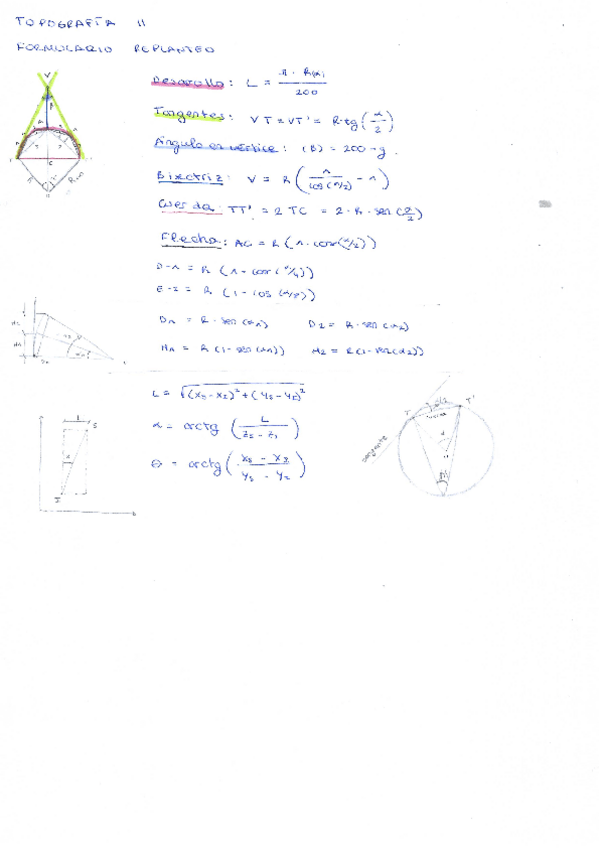 TOPOGRAFÍA II
FORMULARIO REPLANTEO
Desarrollo: L = π · R(α) / 200
Tangentes: VT = VT' = R·tg(α/2)
Ángulo en vértice: (B) = 200 - g.
Bisectriz: V = R (1 / cos(α/2) - 1)
Cuerda: TT' = 2 TC = 2 · R · sen(α/2)
Flecha: AC = R (1 - cos(α/2))
D-1 = R (1 - cos(α/4))
E-2 = R (1 - cos(α/8))
D1 = R · sen(α1) D2 = R · sen(α2)
H1 = R (1 - sen(α1)) H2 = R (1 - sen(α2))
L = √(x5 - x2)² + (y5 - y2)²
α = arctg (L / z5 - z1)
θ = arctg (x5 - x2 / y5 - y2)
V
A
C
R
L
E
α
T
T'
α
tangente